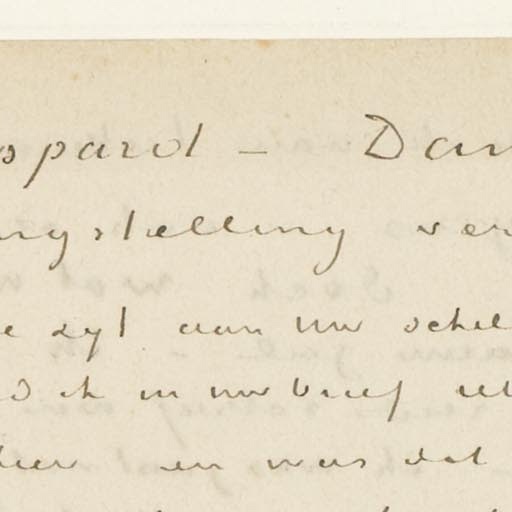 ppard — Dan
ngstelling ver
e zyt aan uw schil
d ik in uw brief uit
en was dat